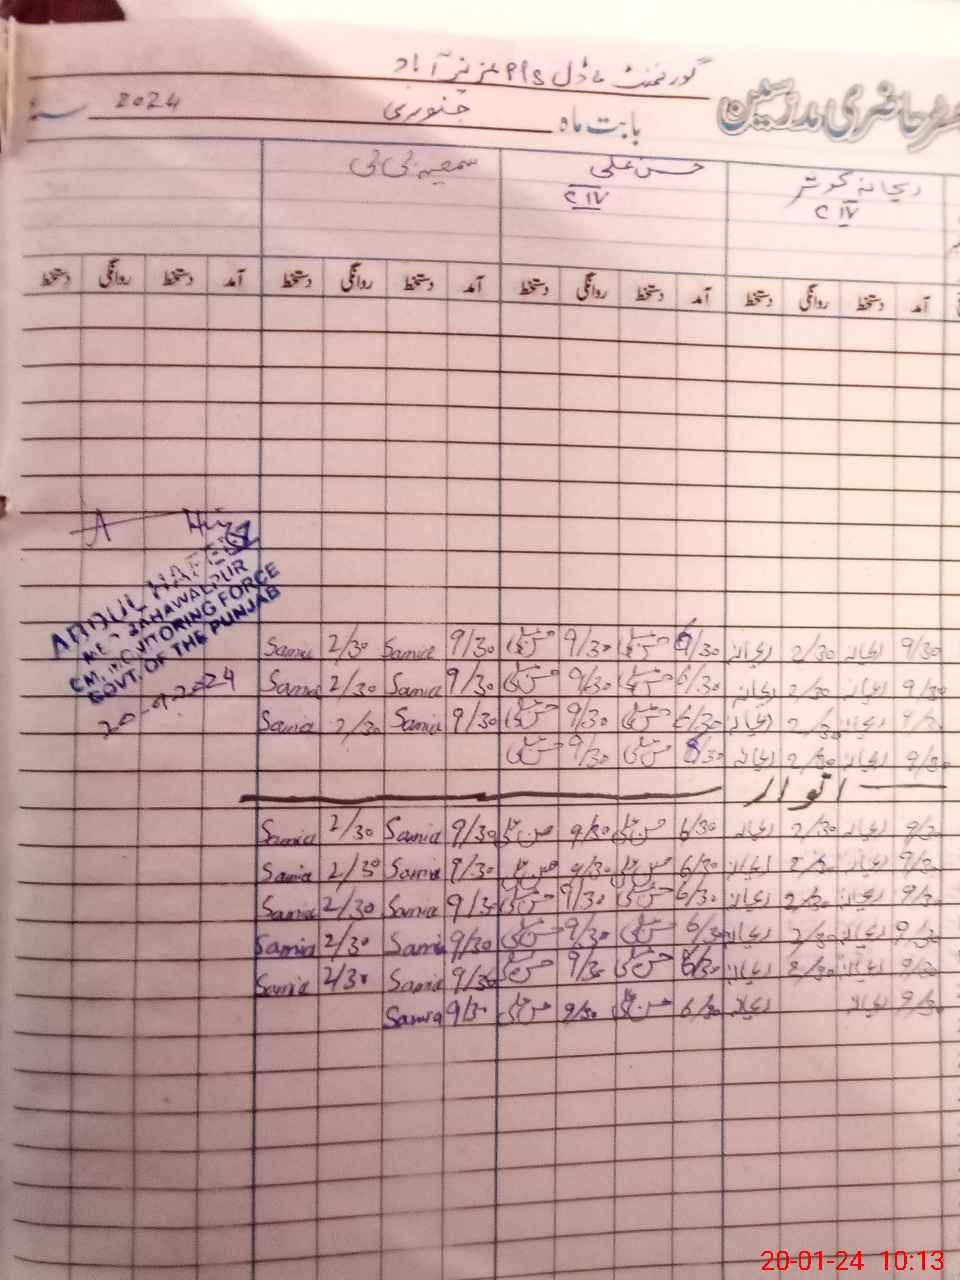 گورنمنٹ ماڈل P/S عزیز آباد
حاضری مدرسین
بابت ماہ جنوری 2024
ریحانہ کوثر حسن علی سمعیہ بی بی
C IV C IV
آمد دستخط روانگی دستخط آمد دستخط روانگی دستخط آمد دستخط روانگی دستخط آمد دستخط روانگی دستخط
ABDUL HAFEEZ
BAHAWALPUR
CM. MONITORING FORCE
GOVT. OF THE PUNJAB
9/30 ریحانہ 2/30 ریحانہ 6/30 حسن علی 9/30 حسن علی 9/30 Samia 2/30 Samia
9/30 ریحانہ 2/30 ریحانہ 6/30 حسن علی 9/30 حسن علی 9/30 Samia 2/30 Samia
9/30 ریحانہ 2/30 ریحانہ 6/30 حسن علی 9/30 حسن علی 9/30 Samia 2/30 Samia
9/30 ریحانہ 2/30 ریحانہ 8/30 حسن علی 9/30 حسن علی
اتوار
9/30 ریحانہ 2/30 ریحانہ 6/30 حسن علی 9/30 حسن علی 9/30 Samia 2/30 Samia
9/30 ریحانہ 2/30 ریحانہ 6/30 حسن علی 9/30 حسن علی 9/30 Samia 2/30 Samia
9/30 ریحانہ 2/30 ریحانہ 6/30 حسن علی 9/30 حسن علی 9/30 Samia 2/30 Samia
9/30 ریحانہ 2/30 ریحانہ 6/30 حسن علی 9/30 حسن علی 9/30 Samia 2/30 Samia
9/30 ریحانہ 2/30 ریحانہ 6/30 حسن علی 9/30 حسن علی 9/30 Samia 2/30 Samia
9/30 ریحانہ ریحانہ 6/30 حسن علی 9/30 حسن علی 9/30 Samia
20-01-24 10:13